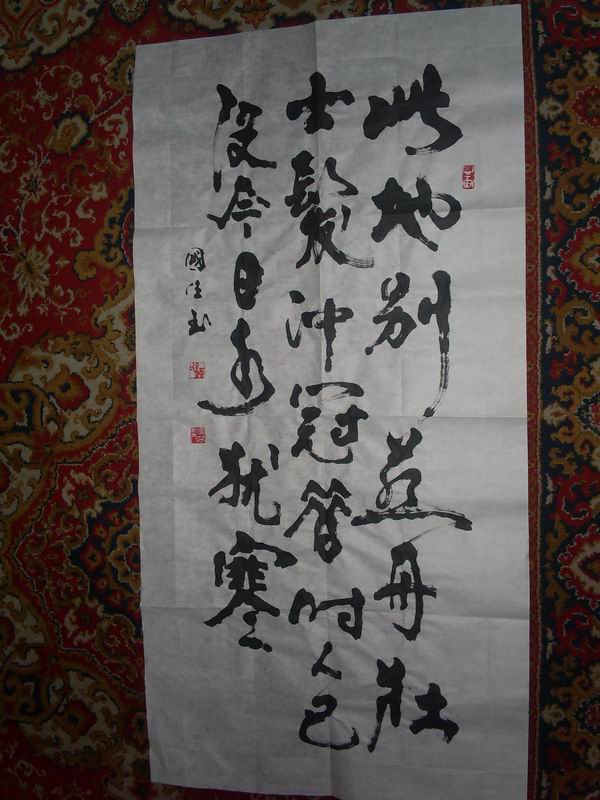 此地别燕丹壮
士髮冲冠昔时人已
没今日水犹寒
國